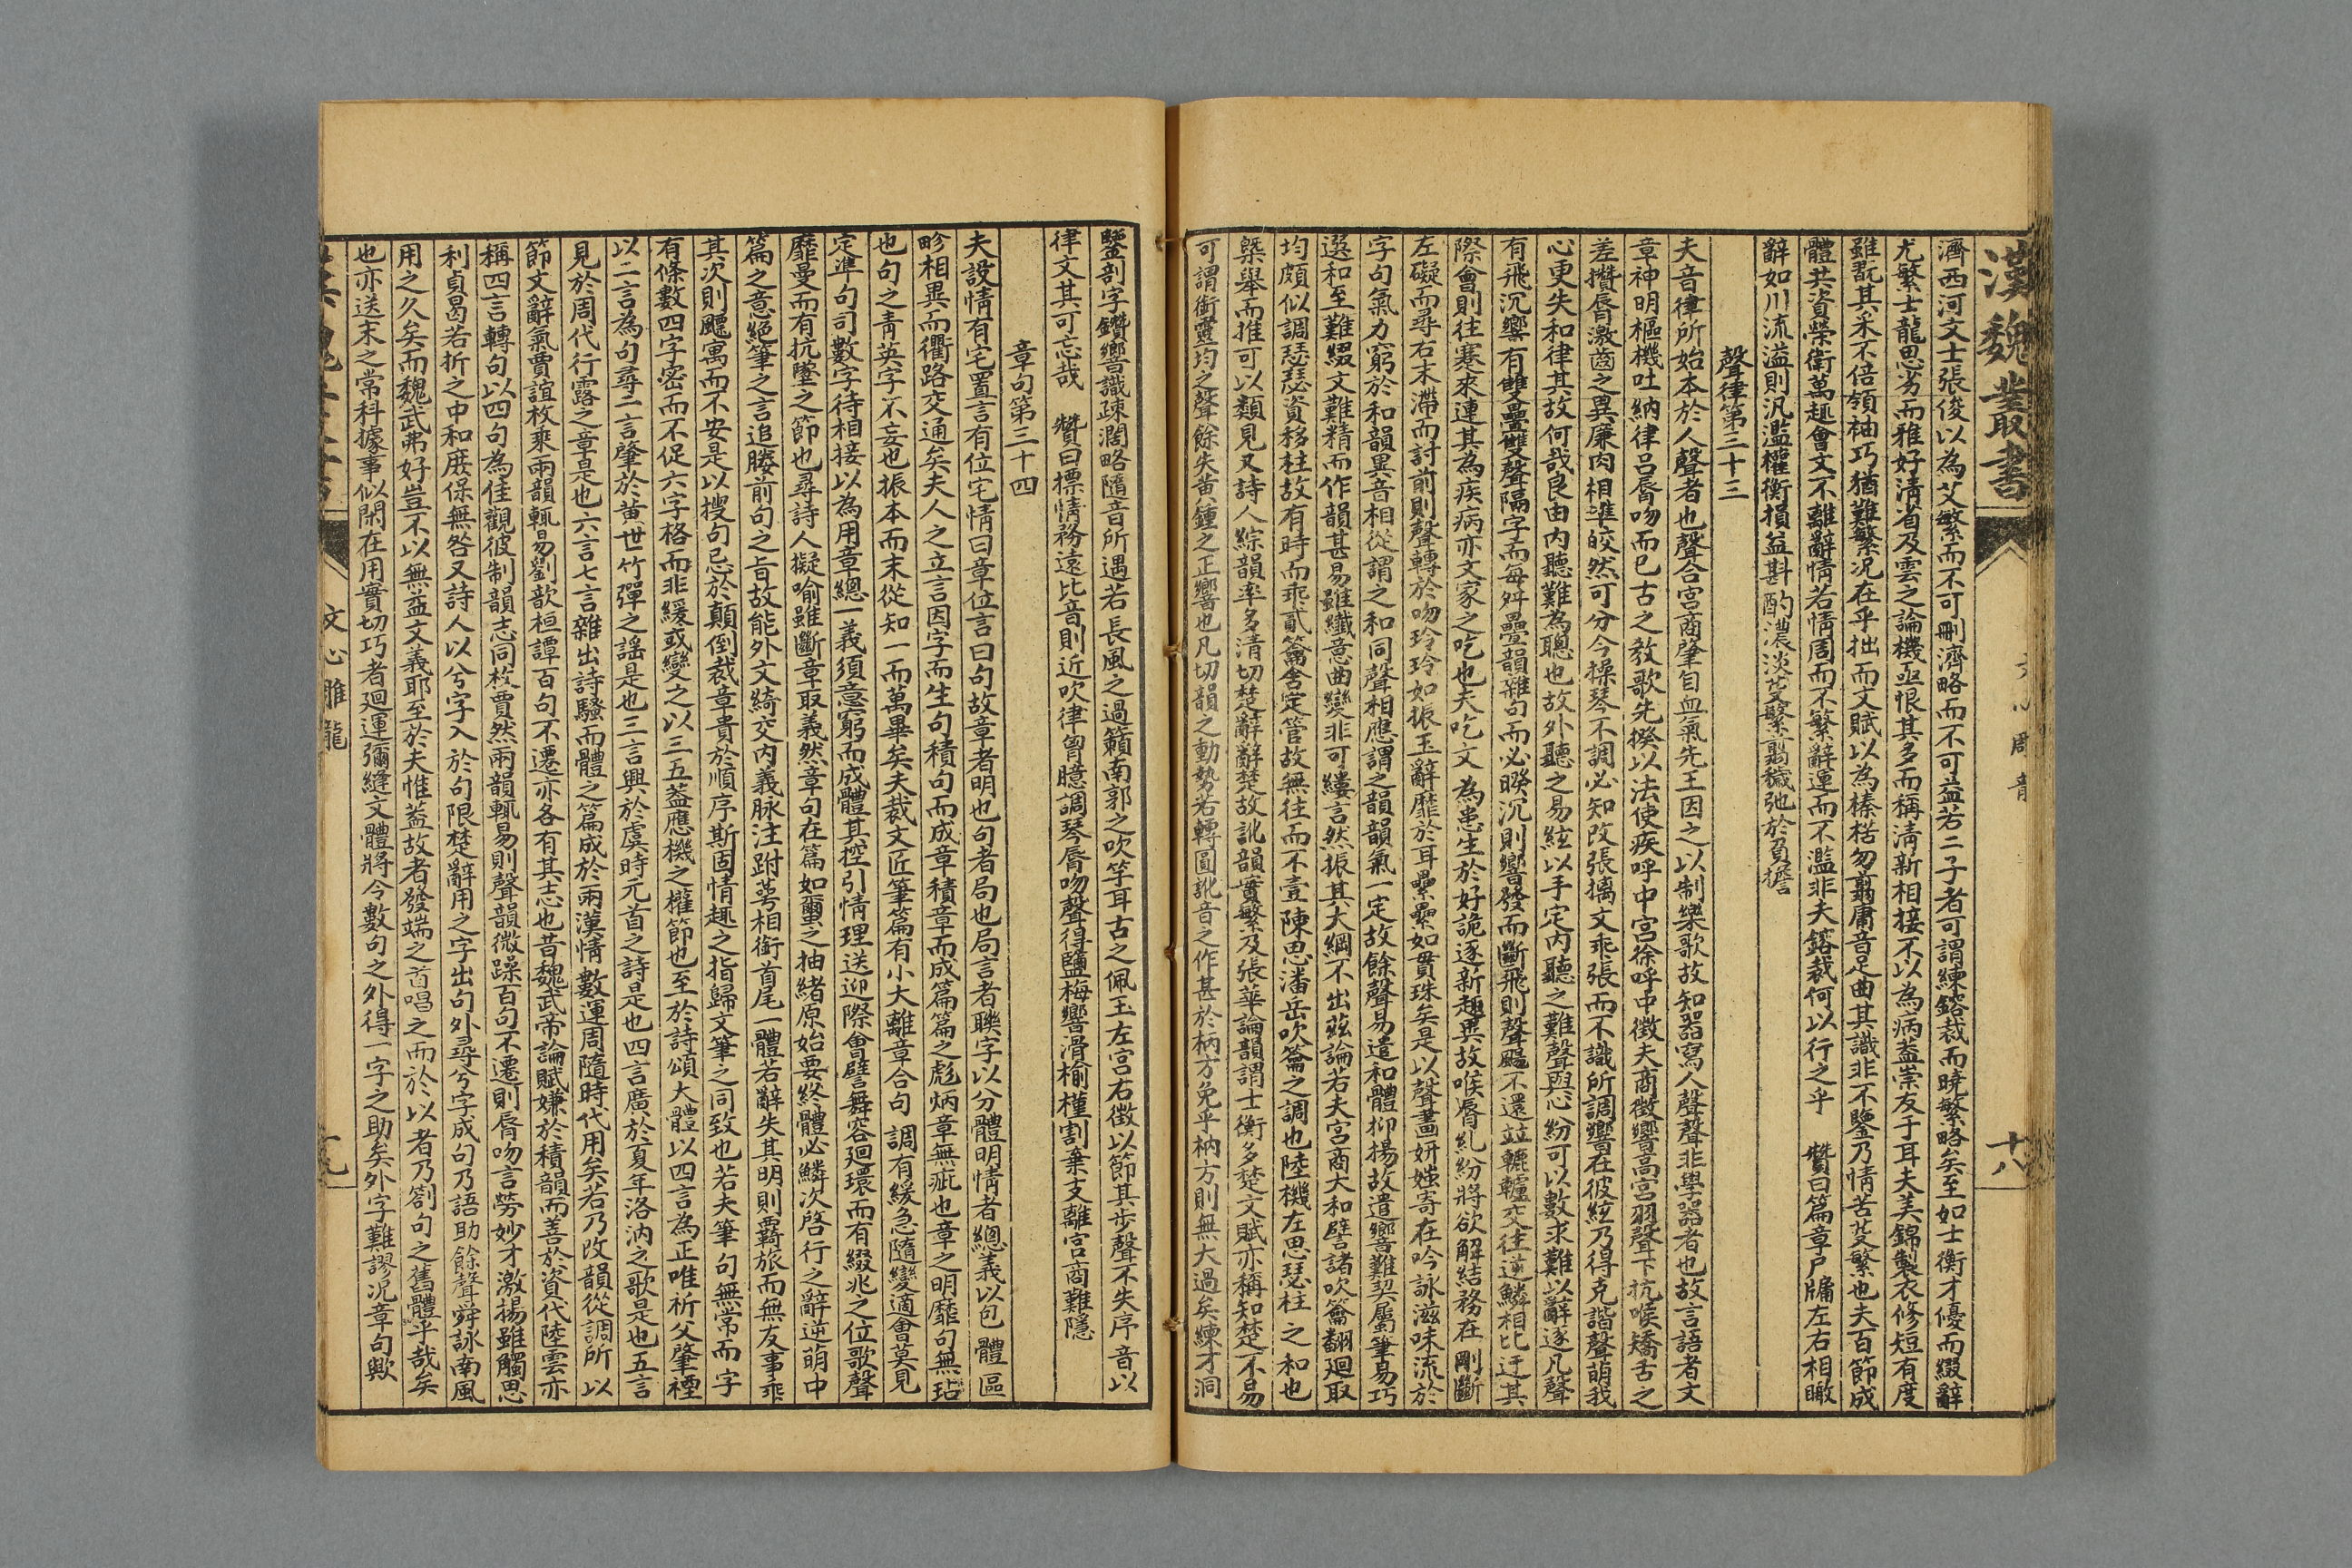 漢魏叢書
十八
濟西河文士張俊以為艾繁而不可刪濟略而不可益若二子者可謂練鎔裁而曉繁略矣至如士衡才優而綴辭
尤繁士龍思劣而雅好清省及雲之論機亟恨其多而稱清新相接不以為病蓋崇友于耳夫美錦製衣修短有度
雖翫其采不倍領袖巧猶難繁況在乎拙而文賦以為榛楛勿翦庸音足曲其識非不鑒乃情苦芟繁也夫百節成
體共資榮衛萬趣會文不離辭情若情周而不繁辭運而不濫非夫鎔裁何以行之乎 贊曰篇章戶牖左右相瞰
辭如川流溢則汎濫權衡損益斟酌濃淡芟繁翦穢弛於負擔
聲律第三十三
夫音律所始本於人聲者也聲合宮商肇自血氣先王因之以制樂歌故知器寫人聲聲非學器者也故言語者文
章神明樞機吐納律呂脣吻而已古之教歌先揆以法使疾呼中宮徐呼中徵夫商徵響高宮羽聲下抗喉矯舌之
差攢脣激齒之異廉肉相準皎然可分今操琴不調必知改張摛文乖張而不識所調響在彼絃乃得克諧聲萌我
心更失和律其故何哉良由內聽難為聰也故外聽之易絃以手定內聽之難聲與心紛可以數求難以辭逐凡聲
有飛沉響有雙疊雙聲隔字而每舛疊韻雜句而必睽沉則響發而斷飛則聲颺不還並轆轤交往逆鱗相比迂其
際會則往蹇來連其為疾病亦文家之吃也夫吃文為患生於好詭逐新趣異故喉脣糺紛將欲解結務在剛斷
左礙而尋右末滯而討前則聲轉於吻玲玲如振玉辭靡於耳纍纍如貫珠矣是以聲畫妍媸寄在吟詠滋味流於
字句氣力窮於和韻異音相從謂之和同聲相應謂之韻韻氣一定故餘聲易遣和體抑揚故遺響難契屬筆易巧
選和至難綴文難精而作韻甚易雖纖意曲變非可縷言然振其大綱不出茲論若夫宮商大和譬諸吹籥翻迴取
均頗似調瑟瑟資移柱故有時而乖貳籥含定管故無往而不壹陳思潘岳吹籥之調也陸機左思瑟柱之和也
槩舉而推可以類見又詩人綜韻率多清切楚辭辭楚故訛韻實繁及張華論韻謂士衡多楚文賦亦稱知楚不易
可謂銜靈均之聲餘失黃鍾之正響也凡切韻之動勢若轉圜訛音之作甚於枘方免乎枘方則無大過矣練才洞
鑒剖字鑽響識疎闊略隨音所遇若長風之過籟南郭之吹竽耳古之佩玉左宮右徵以節其步聲不失序音以
律文其可忘哉 贊曰標情務遠比音則近吹律胷臆調琴脣吻聲得鹽梅響滑榆槿割棄支離宮商難隱
章句第三十四
夫設情有宅置言有位宅情曰章位言曰句故章者明也句者局也局言者聯字以分體明情者總義以包體區
畛相異而衢路交通矣夫人之立言因字而生句積句而成章積章而成篇篇之彪炳章無疵也章之明靡句無玷
也句之菁英字不妄也振本而末從知一而萬畢矣夫裁文匠筆篇有小大離章合句調有緩急隨變適會莫見
定準句司數字待相接以為用章總一義須意窮而成體其控引情理送迎際會譬舞容迴環而有綴兆之位歌聲
靡曼而有抗墜之節也尋詩人擬喻雖斷章取義然章句在篇如蠒之抽緒原始要終體必鱗次啓行之辭逆萌中
篇之意絕筆之言追媵前句之旨故能外文綺交內義脉注跗萼相銜首尾一體若辭失其朋則羈旅而無友事乖
其次則飄寓而不安是以搜句忌於顛倒裁章貴於順序斯固情趣之指歸文筆之同致也若夫筆句無常而字
有條數四字密而不促六字格而非緩或變之以三五蓋應機之權節也至於詩頌大體以四言為正唯祈父肇禋
以二言為句尋二言肇於黃世竹彈之謠是也三言興於虞時元首之詩是也四言廣於夏年洛汭之歌是也五言
見於周代行露之章是也六言七言雜出詩騷而體之篇成於兩漢情數運周隨時代用矣若乃改韻從調所以
節文辭氣賈誼枚乘兩韻輒易劉歆桓譚百句不遷亦各有其志也昔魏武帝論賦嫌於積韻而善於資代陸雲亦
稱四言轉句以四句為佳觀彼制韻志同枚賈然兩韻輒易則聲韻微躁百句不遷則脣吻言勞妙才激揚雖觸思
利貞曷若折之中和庶保無咎又詩人以兮字入於句限楚辭用之字出句外尋兮字成句乃語助餘聲舜詠南風
用之久矣而魏武弗好豈不以無益文義耶至於夫惟蓋故者發端之首唱之而於以者乃劄句之舊體乎哉矣
也亦送末之常科據事似閑在用實切巧者迴運彌縫文體將令數句之外得一字之助矣外字難謬況章句歟
文心雕龍